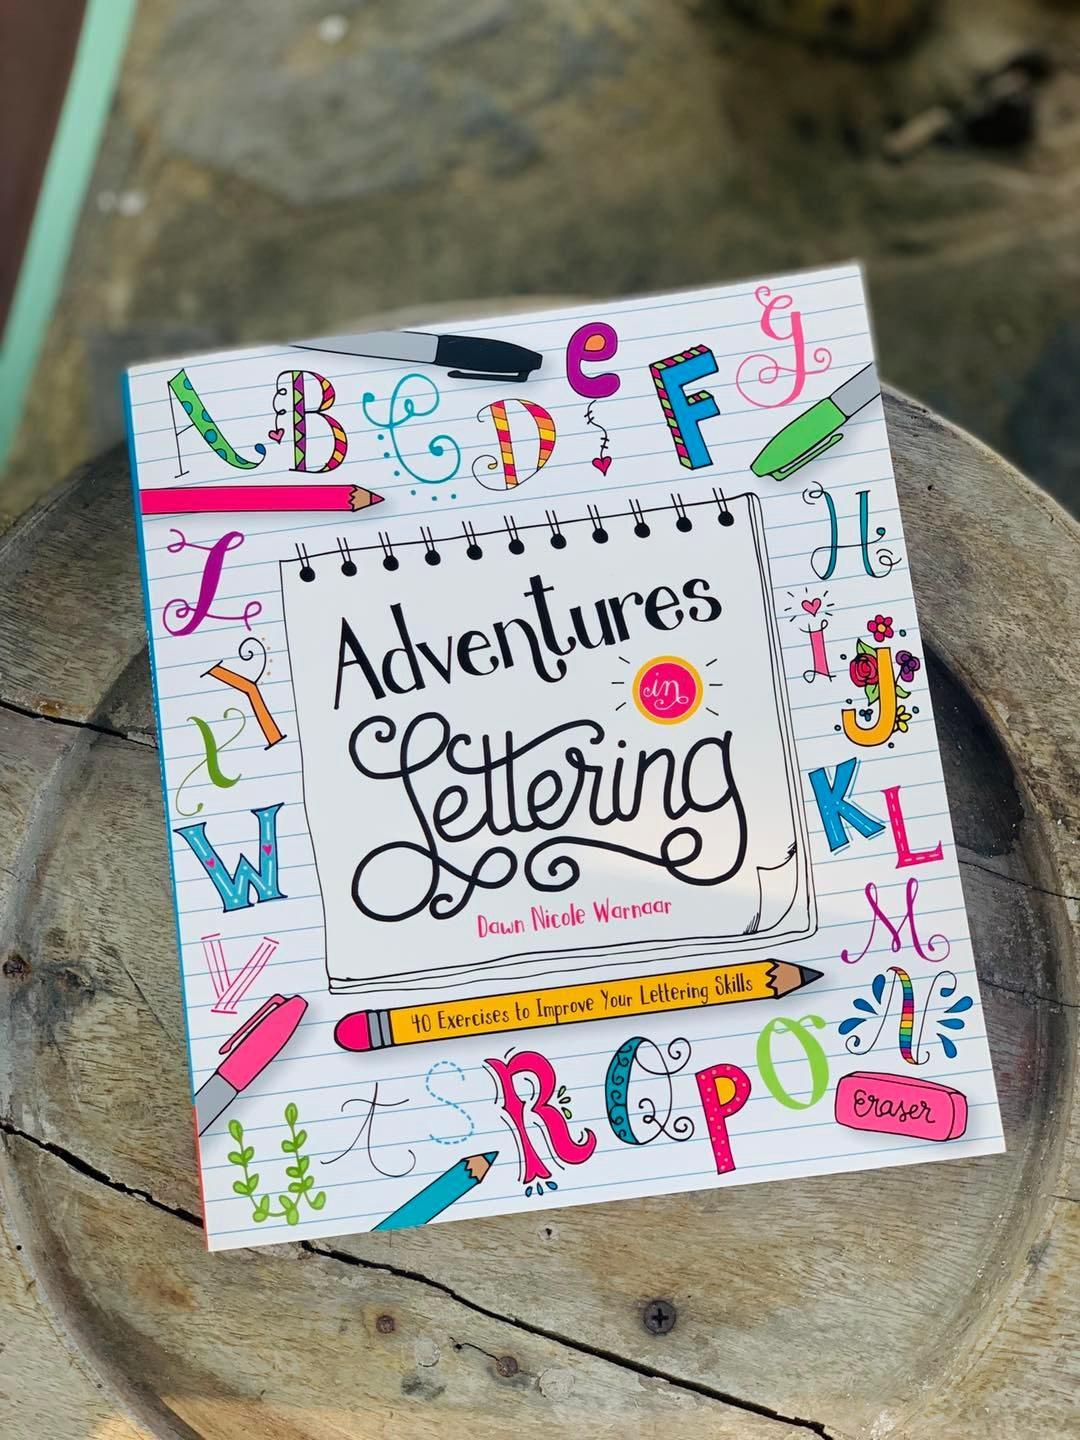 A B C D e F G
H
I
J
K L
M
N
Z
Y
X
W
V
U t S R Q P O
Adventures
in
Lettering
Dawn Nicole Warnaar
40 Exercises to Improve Your Lettering Skills
eraser